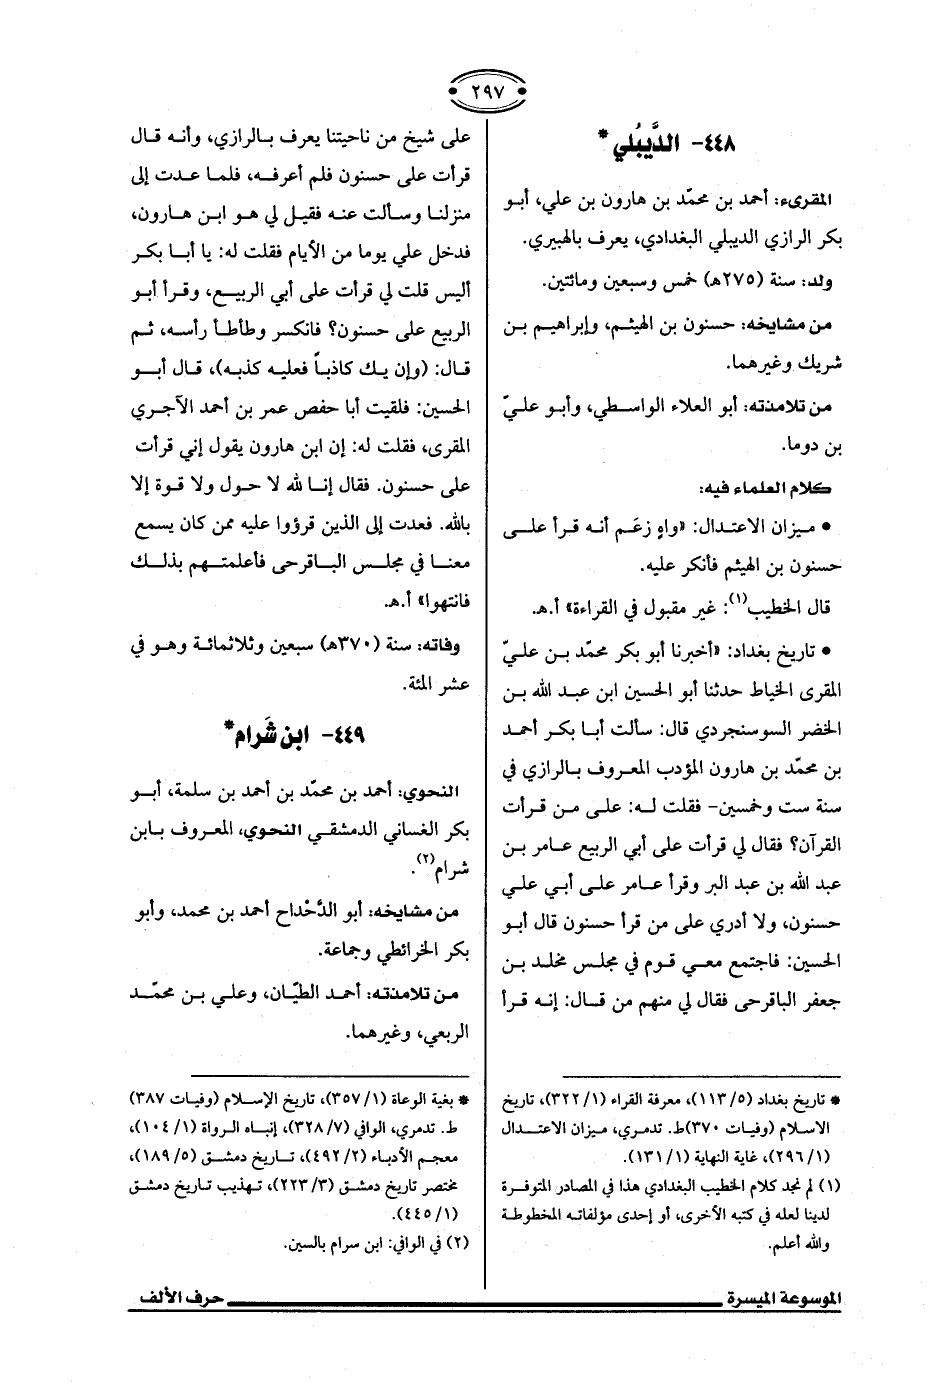 ٢٩٧
٤٤٨- الدَّيبُلي *
المقرىء: أحمد بن محمّد بن هارون بن علي، أبو
بكر الرازي الديبلي البغدادي، يعرف بالهبيري.
ولد: سنة (٢٧٥هـ) خمس وسبعين ومائتين.
من مشايخه: حسنون بن الهيثم، وإبراهيم بن
شريك وغيرهما.
من تلامذته: أبو العلاء الواسطي، وأبو عليّ
بن دوما.
كلام العلماء فيه:
• ميزان الاعتدال: «واهٍ زعَم أنه قرأ على
حسنون بن الهيثم فأنكر عليه.
قال الخطيب(١): غير مقبول في القراءة» أ.هـ.
• تاريخ بغداد: «أخبرنا أبو بكر محمّد بن عليّ
المقرى الخياط حدثنا أبو الحسين ابن عبد الله بن
الخضر السوسنجردي قال: سألت أبا بكر أحمد
بن محمّد بن هارون المؤدب المعروف بالرازي في
سنة ست وخمسين- فقلت له: على من قرأت
القرآن؟ فقال لي قرأت على أبي الربيع عامر بن
عبد الله بن عبد البر وقرأ عامر على أبي علي
حسنون، ولا أدري على من قرأ حسنون قال أبو
الحسين: فاجتمع معي قوم في مجلس مخلد بن
جعفر الباقرحى فقال لي منهم من قال: إنه قرأ
* تاريخ بغداد (١١٣/٥)، معرفة القراء (٣٢٢/١)، تاريخ
الاسلام (وفيات ٣٧٠)ط. تدمري، ميزان الاعتدال
(٢٩٦/١)، غاية النهاية (١٣١/١).
(١) لم نجد كلام الخطيب البغدادي هذا في المصادر المتوفرة
لدينا لعله في كتبه الأخرى، أو إحدى مؤلفاته المخطوطة
والله أعلم.
على شيخ من ناحيتنا يعرف بالرازي، وأنه قال
قرأت على حسنون فلم أعرفه، فلما عدت إلى
منزلنا وسألت عنه فقيل لي هو ابن هارون،
فدخل علي يوما من الأيام فقلت له: يا أبا بكر
أليس قلت لي قرأت على أبي الربيع، وقرأ أبو
الربيع على حسنون؟ فانكسر وطأطأ رأسه، ثم
قال: (وإن يك كاذباً فعليه كذبه)، قال أبو
الحسين: فلقيت أبا حفص عمر بن أحمد الآجري
المقرى، فقلت له: إن ابن هارون يقول إني قرأت
على حسنون. فقال إنا لله لا حول ولا قوة إلا
بالله. فعدت إلى الذين قرؤوا عليه ممن كان يسمع
معنا في مجلس الباقرحى فأعلمتهم بذلك
فانتهوا» أ.هـ.
وفاته: سنة (٣٧٠هـ) سبعين وثلاثمائة وهو في
عشر المئة.
٤٤٩- ابن شَرام *
النحوي: أحمد بن محمّد بن أحمد بن سلمة، أبو
بكر الغساني الدمشقي النحوي، المعروف بابن
شرام(٢).
من مشايخه: أبو الدَّحْداح أحمد بن محمد، وأبو
بكر الخرائطي وجماعة.
من تلامذته: أحمد الطيّان، وعلي بن محمّد
الربعي، وغيرهما.
* بغية الوعاة (٣٥٧/١)، تاريخ الإسلام (وفيات ٣٨٧)
ط. تدمري، الوافي (٣٢٨/٧)، إنباه الرواة (١٠٤/١)،
معجم الأدباء (٤٩٢/٢)، تاريخ دمشق (١٨٩/٥)،
مختصر تاريخ دمشق (٢٢٣/٣)، تهذيب تاريخ دمشق
(٤٤٥/١).
(٢) في الوافي: ابن سرام بالسين.
الموسوعة الميسرة حرف الألف